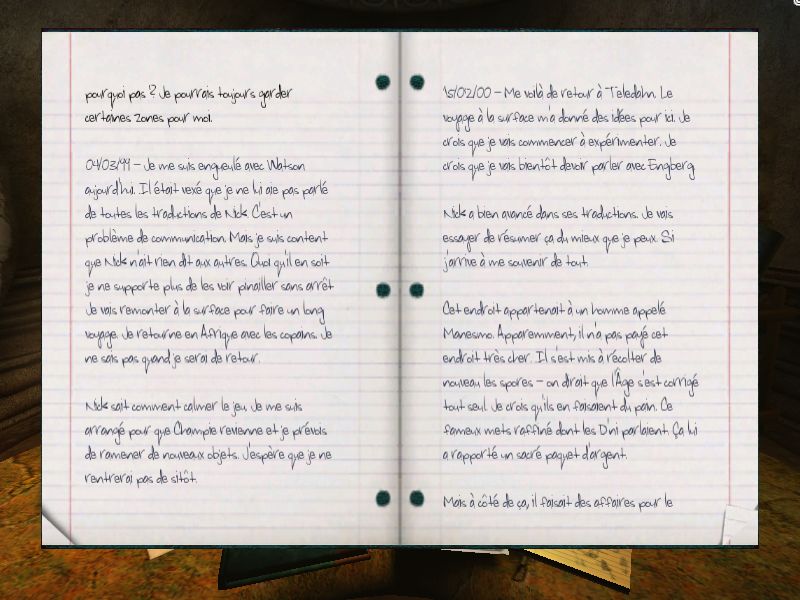 pourquoi pas ? Je pourrais toujours garder
certaines zones pour moi.
04/03/99 - Je me suis engueulé avec Watson
aujourd'hui. Il était vexé que je ne lui aie pas parlé
de toutes les traductions de Nick. C'est un
problème de communication. Mais je suis content
que Nick n'ait rien dit aux autres. Quoi qu'il en soit
je ne supporte plus de les voir pinailler sans arrêt
Je vais remonter à la surface pour faire un long
voyage. Je retourne en Afrique avec les copains. Je
ne sais pas quand je serai de retour.
Nick sait comment calmer le jeu. Je me suis
arrangé pour que Champie revienne et je prévois
de ramener de nouveaux objets. J'espère que je ne
rentrerai pas de sitôt.
15/02/00 - Me voilà de retour à Teledahn. Le
voyage à la surface m'a donné des idées pour ici. Je
crois que je vais commencer à expérimenter. Je
crois que je vais bientôt devoir parler avec Engberg
Nick a bien avancé dans ses traductions. Je vais
essayer de résumer ça du mieux que je peux. Si
j'arrive à me souvenir de tout.
Cet endroit appartenait à un homme appelé
Manesmo. Apparemment, il n'a pas payé cet
endroit très cher. Il s'est mis à récolter de
nouveau les spores - on dirait que l'Âge s'est corrigé
tout seul. Je crois qu'ils en faisaient du pain. Ce
fameux mets raffiné dont les D'ni parlaient. Ça lui
a rapporté un sacré paquet d'argent.
Mais à côté de ça, il faisait des affaires pour le